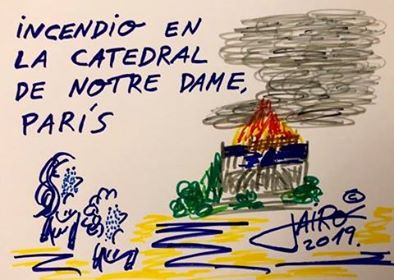 INCENDIO EN
LA CATEDRAL
DE NOTRE DAME,
PARÍS
©
JAIRO
2019.